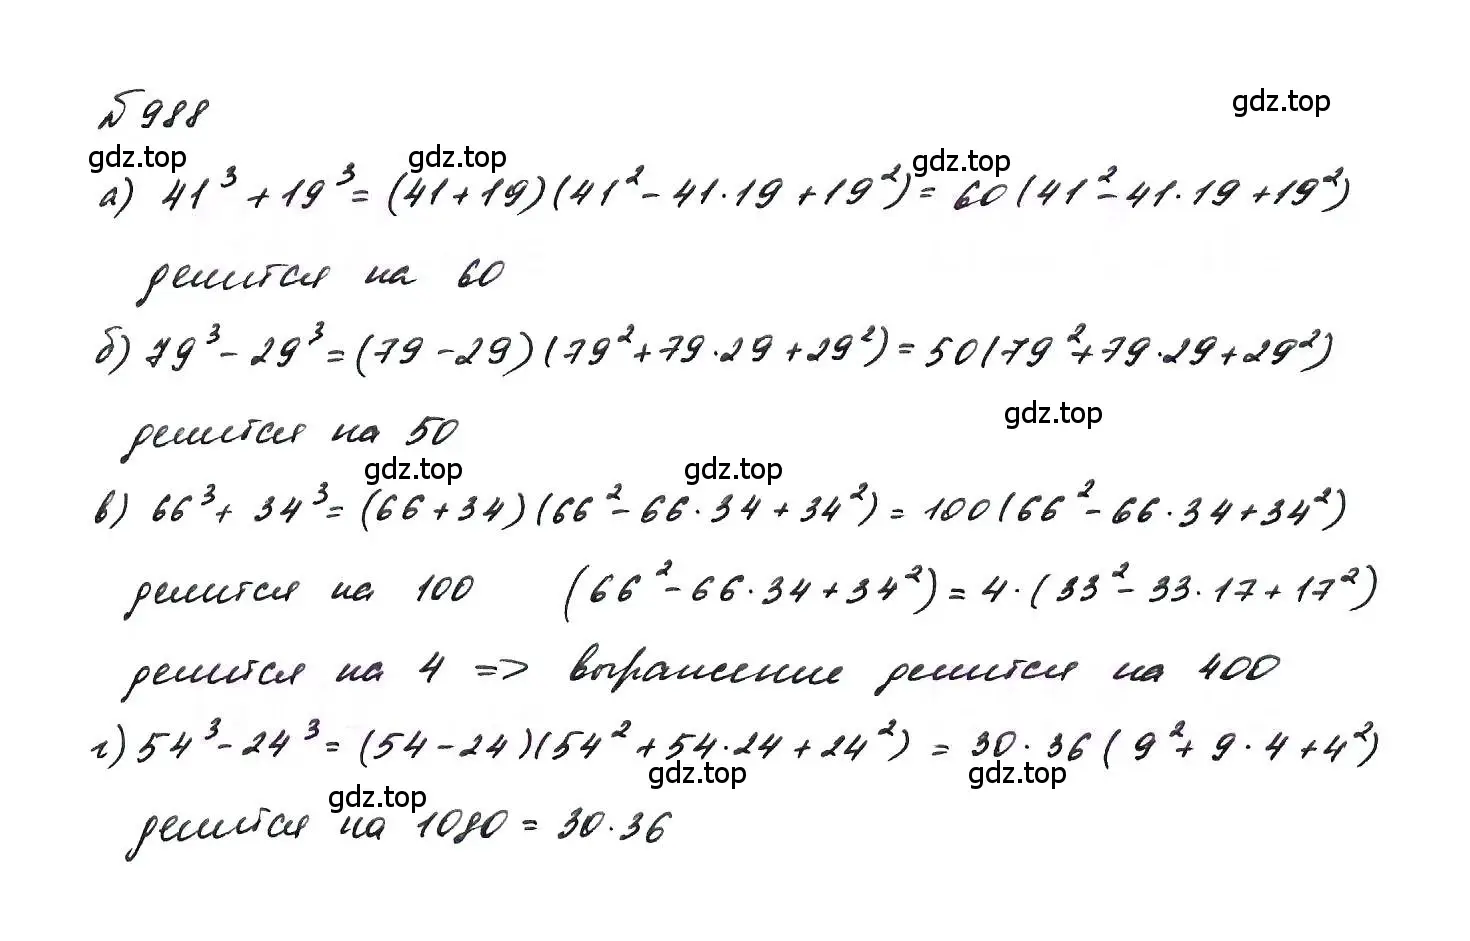 № 988
gdz.top
gdz.top gdz.top gdz.top
а) 41³ + 19³ = (41 + 19)(41² - 41·19 + 19²) = 60(41² - 41·19 + 19²)
делится на 60
б) 79³ - 29³ = (79 - 29)(79² + 79·29 + 29²) = 50(79² + 79·29 + 29²)
gdz.top
делится на 50
gdz.top gdz.top
в) 66³ + 34³ = (66 + 34)(66² - 66·34 + 34²) = 100(66² - 66·34 + 34²)
делится на 100 (66² - 66·34 + 34²) = 4·(33² - 33·17 + 17²)
делится на 4 => выражение делится на 400
г) 54³ - 24³ = (54 - 24)(54² + 54·24 + 24²) = 30·36(9² + 9·4 + 4²)
gdz.top gdz.top
gdz.top
делится на 1080 = 30·36